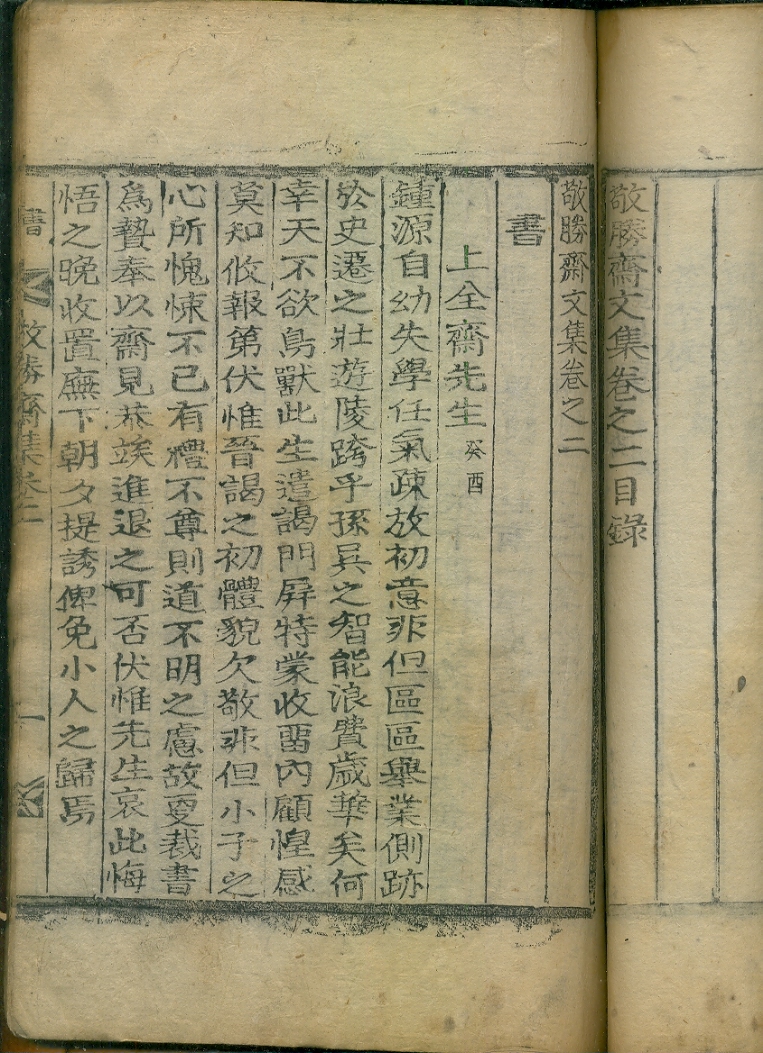 敬勝齋文集卷之二目錄
敬勝齋文集卷之二
書
上全齋先生 癸酉
鍾源自幼失學任氣疎放初意非但區區舉業側跡
於史遷之壯遊陵跨乎孫吳之智能浪費歲華矣何
幸天不欲鳥獸此生遣謁門屛特蒙收畱內顧惶感
莫知攸報第伏惟晉謁之初體貌欠敬非但小子之
心所愧悚不已有禮不尊則道不明之慮故更裁書
爲贄奉以齋見恭竢進退之可否伏惟先生哀此悔
悟之晚收置廡下朝夕提誘俾免小人之歸焉
書 敬勝齋集卷二 一